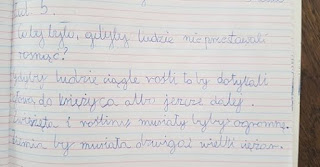 5
by było, gdyby ludzie nie przestawali
rosnąć?
gdyby ludzie ciągle rośli to by dotykali
do księżyca albo jeszcze dalej.
i rośliny musiały by być ogromne.
by musiała dzwigać wielki ciężar.